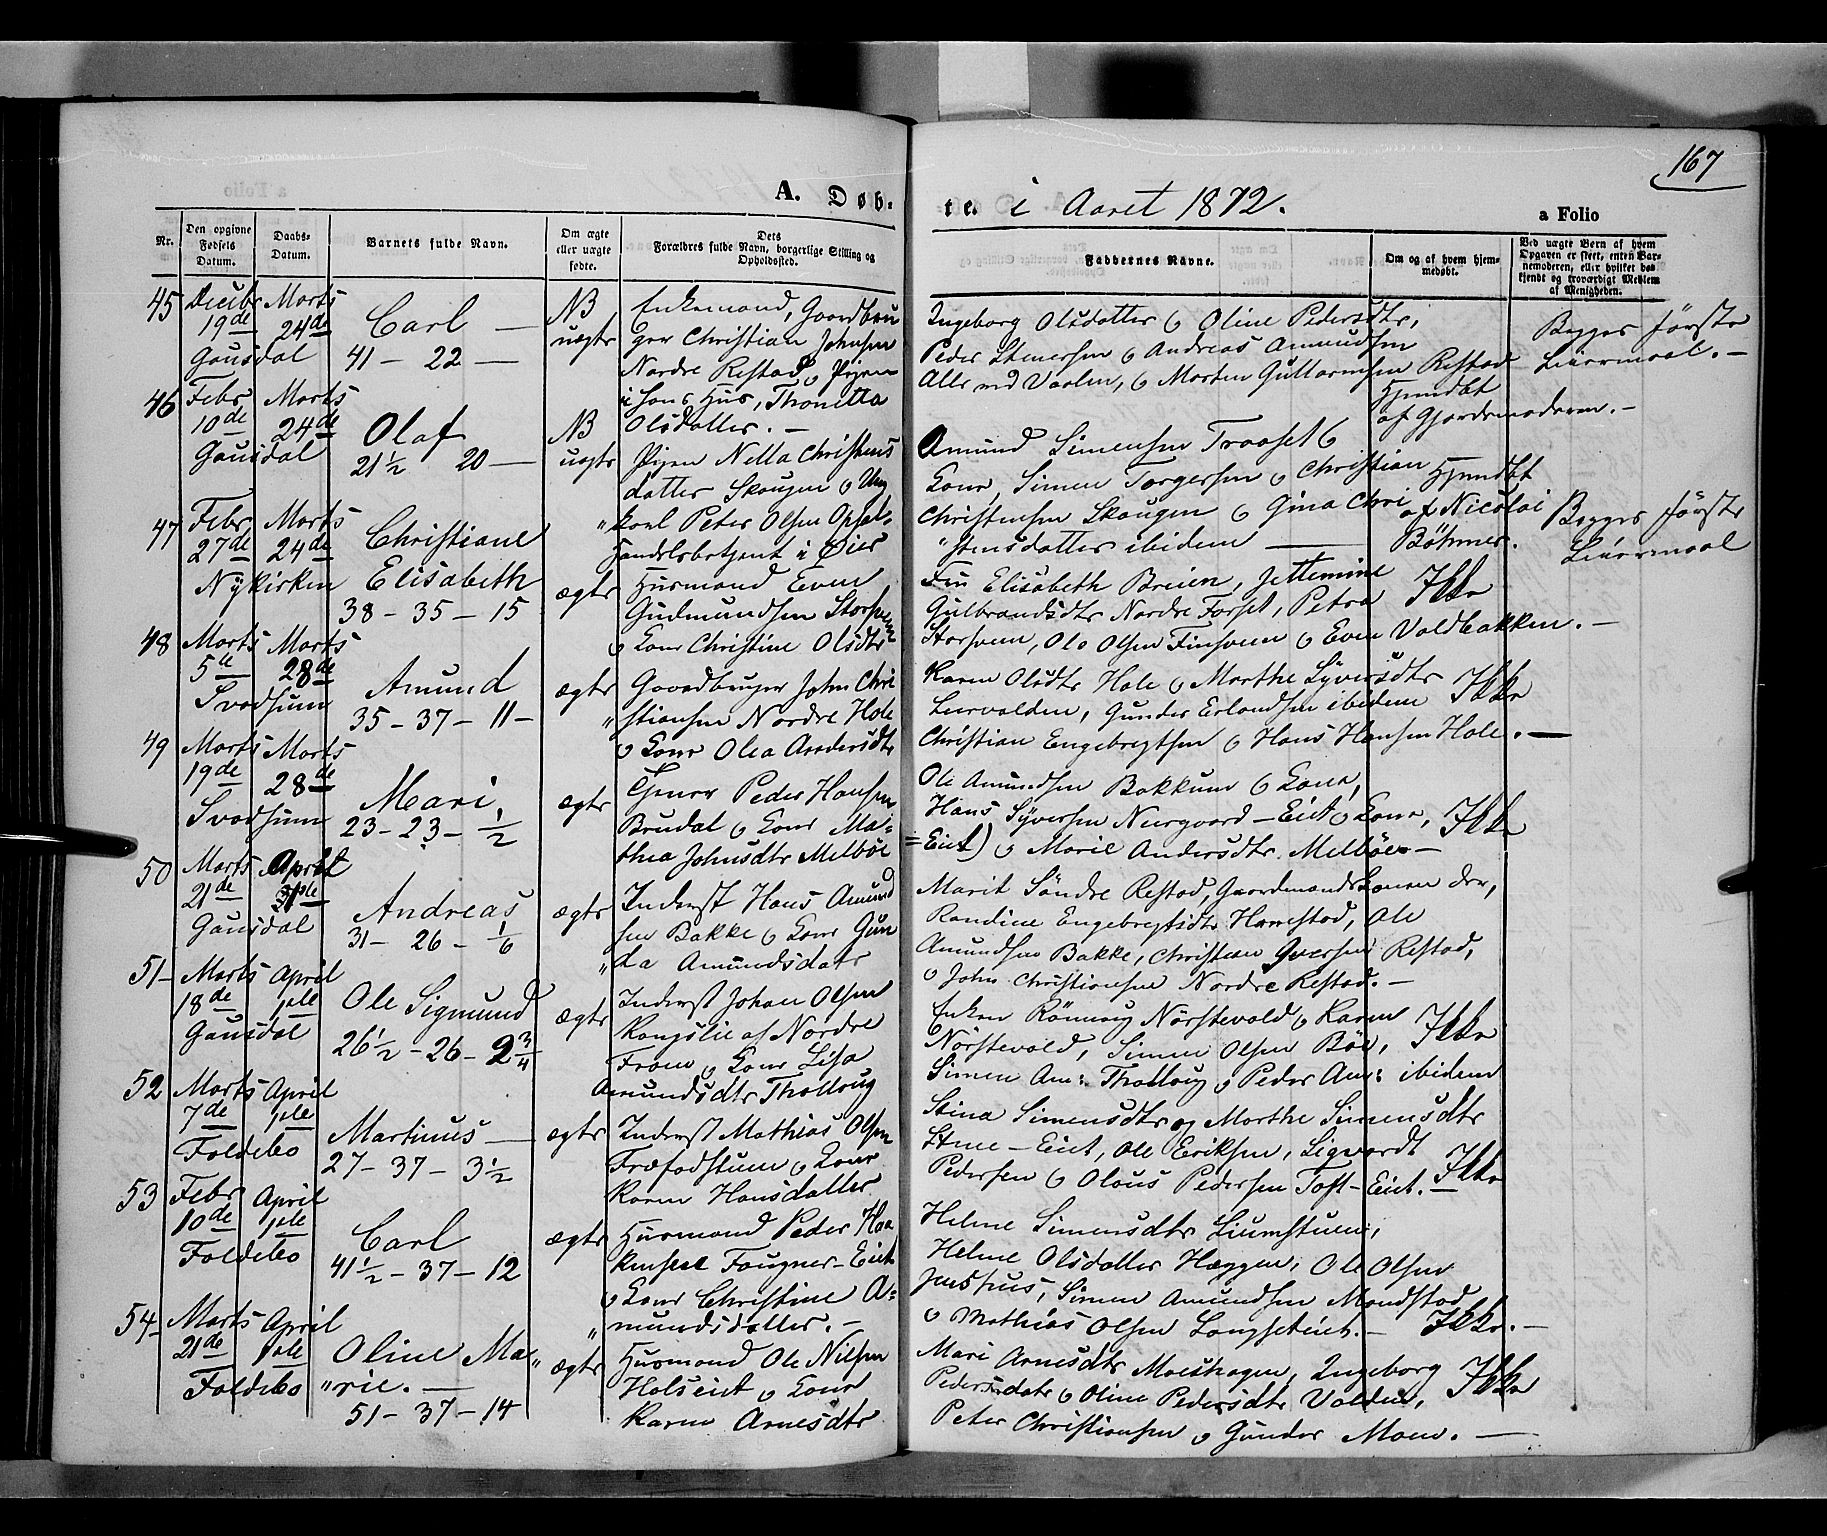 167
A. Døb-
te. i Aaret 1872.
a Folio
Nr.
Den opgivne Fødsels Datum.
Daabs-Datum.
Barnets fulde Navn.
Om ægte eller uægte fødte.
Dets Forældres fulde Navn, borgerlige Stilling og Opholdssted.
Faddernes Navne.
Om og af hvem hjemmedøbt.
Ved uægte Børn af hvem Opgaven er skeet, enten Barnemoderen, eller hvilket bekjendt og troværdigt Medlem af Menigheden.
45 Decbr Marts
19de 24de
Gausdal
Carl —
41 — 22 —
NB
uægte
Enkemand, Gaardbru
ger Christian Johnsen
Nordre Restad o Pigen
i hans Hus, Thonetta
Olsdatter. —
Ingeborg Olsdatter o Oline Pedersdtr,
Peder Stenersen o Andreas Amundsen
Alle ved Vaalen, o Morten Guttormsen Restad
Begges første
Leiermaal. —
46 Febr Marts
10de 24de
Gausdal
Olaf
21½ 20 —
NB
uægte
Pigen Netta Christens
datter Skougen o Ung
"karl Peter Olsen Opsal-
Handelsbetjent i Øier
Amund Simensen Traaset o
Kone, Simen Torgersen o Christian
Christensen Skougen o Gina Chri
"stensdatter ibidem —
Hjemdbt
af Gjordemoderen. —
Hjemdbt
af Nicolai
Böhmer.
Begges første
Leiermaal
47 Febr Marts
27de 24de
Nykirken
Christiane
Elisabeth
38 — 35 — 15
ægte
Husmand Even
Gudmundsen Storsveen
o Kone Christine Olsdtr
Frü Elisabeth Breien, Jettemine
Gulbrandsdtr Nordre Forset, Petra
Storsveen, Ole Olsen Finsveen o Even Valdbakken. —
Ikke
48 Marts Marts
5te 28de
Svadsum
Amund
35 — 37 — 11 —
ægte
Gaardbruger John Chri
"stiansen Nordre Hole
o Kone Olea Andersdtr
Karen Olsdtr Hole o Marthe Syversdtr
Leervalden, Gunder Erlandsen ibidem
Christian Engebregtsen o Hans Hansen Hole. —
Ikke
49 Marts Marts
19de 28de
Svadsum
Mari,
23 — 23 — ½
ægte
Tjener Peder Hansen
Brudal o Kone Ma-
thea Johnsdtr Melböe
Ole Amundsen Bakkum o Kone,
Hans Syversen Neergaard — Eiet o Kone,
=Eiet) o Marie Andersdtr Melböe —
Ikke
50 Marts April
21de
Gausdal
Andreas
31 — 26 — 1/6
ægte
Inderst Hans Amund
sen Bakke o Kone Gun
"da Amundsdatr
Marit Söndre Restad, Gaardmandskonen der,
Randine Engebregtsdtr Harrestad, Ole
Amundsen Bakke, Christian Iversen Restad,
o John Christiansen Nordre Restad. —
51 — Marts April
18de 1ste
Gausdal
Ole Sigmund
26½ — 26 — 2¾
ægte
Inderst Johan Olsen
Kongslie af Nordre
Fron o Kone Lisa
Amundsdtr Thallaug
Enken Rönnaug Nörstevold o Karen
Nörstevold, Simen Olsen Böe,
Simen Am: Thallaug o Peder Am: ibidem
Ikke
52 Marts April
7de 1ste
Foldebo
Martinus —
27 — 37 — 3½
ægte
Inderst Mathias Olsen
Fræfodstuen o Kone
Karen Hansdatter
Stina Simensdtr og Marthe Simensdtr
Stene — Eiet, Ole Eriksen, Sigvardt
Pedersen o Olaus Pedersen Toft — Eiet. —
Ikke
53 Febr April
10de 1ste
Foldebo
Carl
41½ — 37 — 12
ægte
Husmand Peder Haa
kensen Fougner — Eiet
o Kone Christine A=
"mundsdatter. —
Helene Simensdtr Liumstuen,
Helene Olsdatter Hæggen, Ole Olsen
Jenshus, Simen Amundsen Mandstad
o Mathias Olsen Langseteiet. —
Ikke. —
54 — Marts April
21de 1ste
Foldebo
Oline Ma
"rie. —
51 — 37 — 14
"ægte
Husmand Ole Nilsen
Holseiet o Kone
Karen Arnesdtr
Mari Arnesdtr Moeshagen, Ingeborg
Pedersdatr o Oline Pedersdtr Valden,
Peter Christiansen o Gunder Moen. —
Ikke